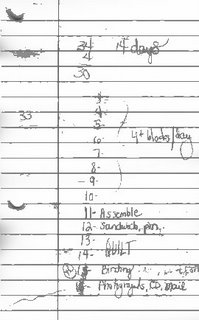 34 14 days
4
30
3
4
33 5
6 4+ blocks/day
7
8-
-9-
10-
11- Assemble
12- Sandwich, pin,
13-
14- QUILT
Binding
Photograph, CD, mail